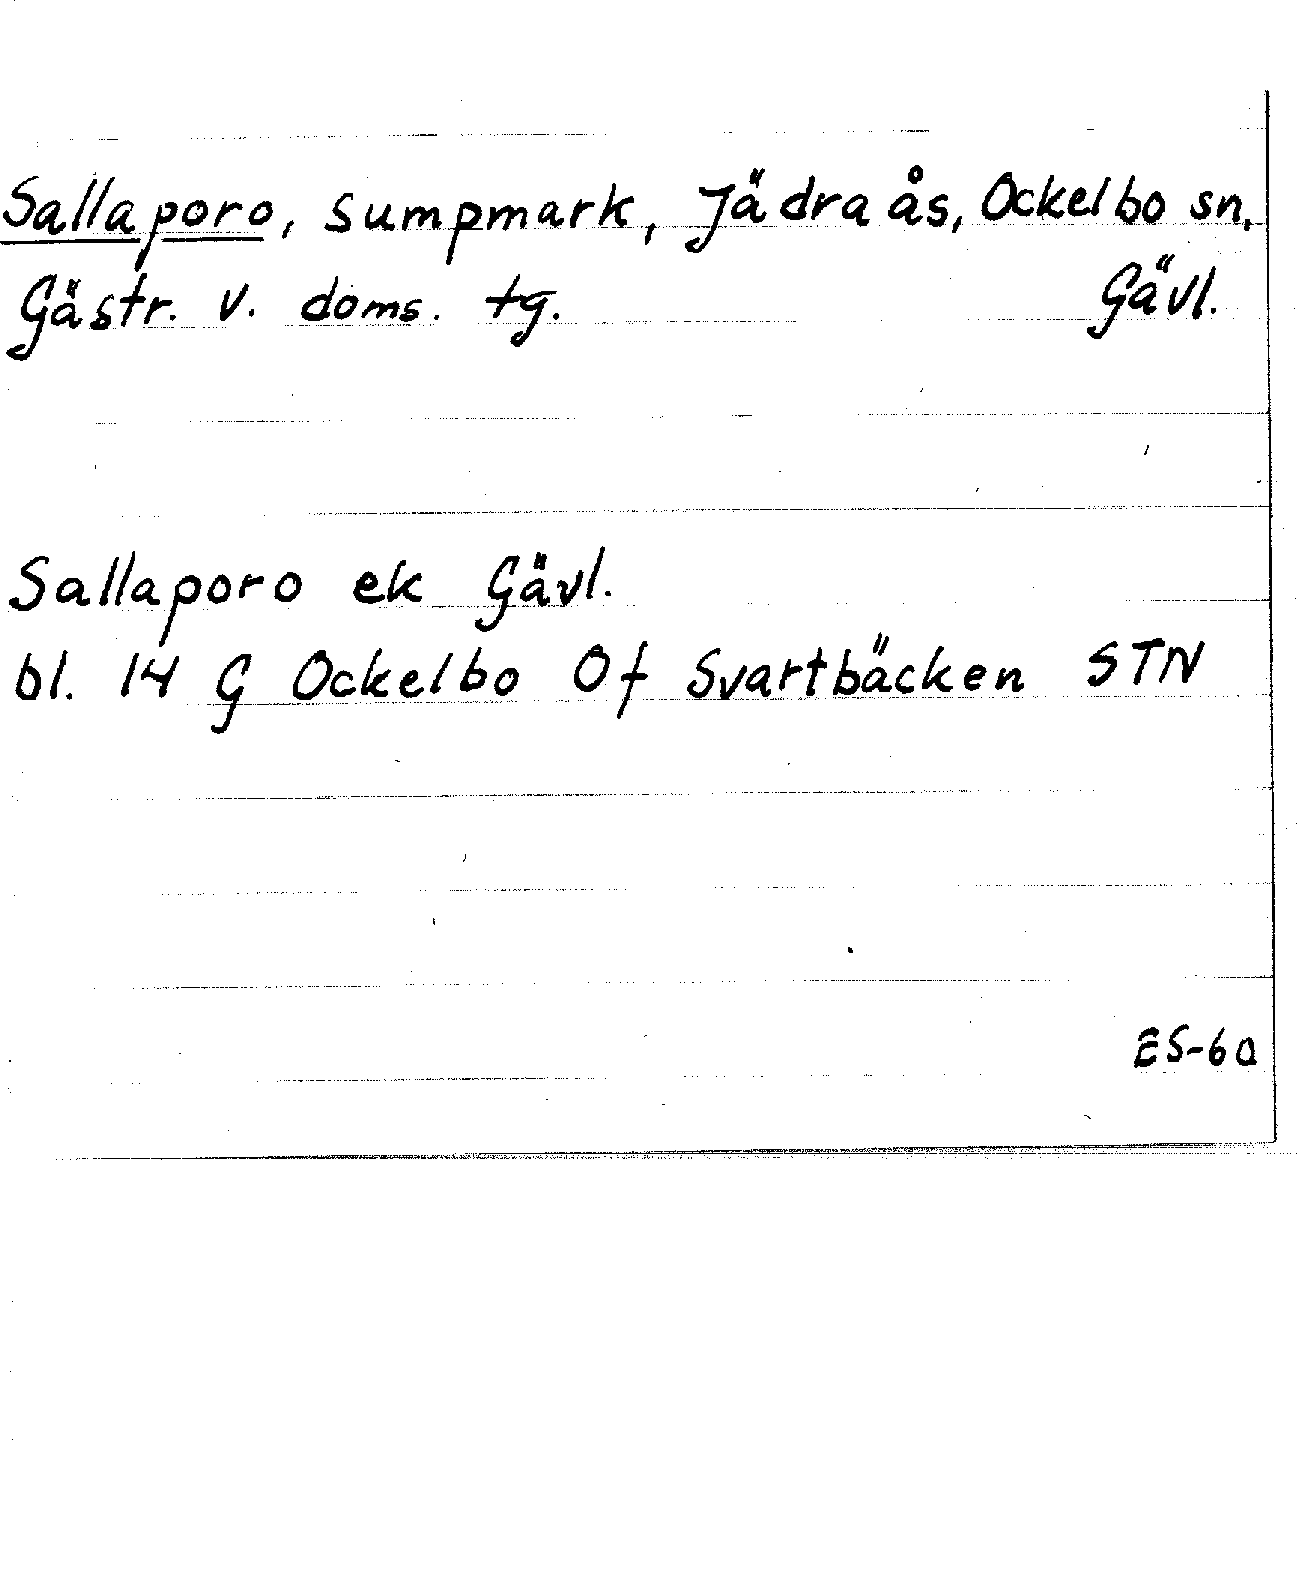 Sallaporo, sumpmark, Jädraås, Ockelbo sn,
Gästr. v. doms. tg. Gävl.
Sallaporo ek Gävl.
bl. 14 G Ockelbo Of Svartbäcken STN
ES-60